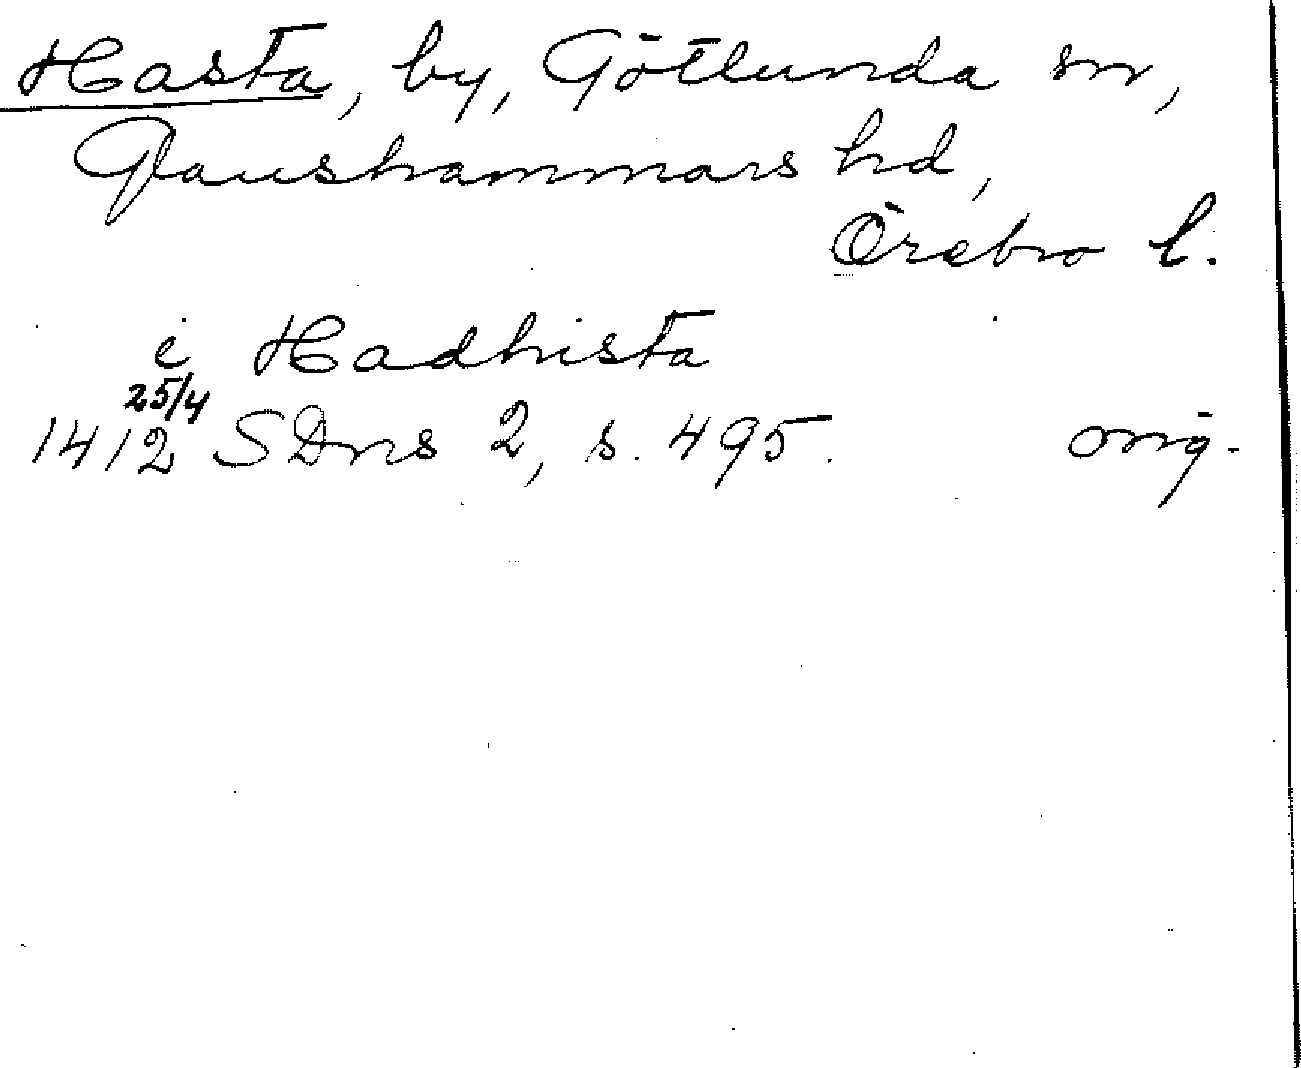 Hasta, by, Götlunda sn,
Glanshammars hd,
Örebro l.
i Hadhista
25/4
1412 SDns 2, s. 495. orig.